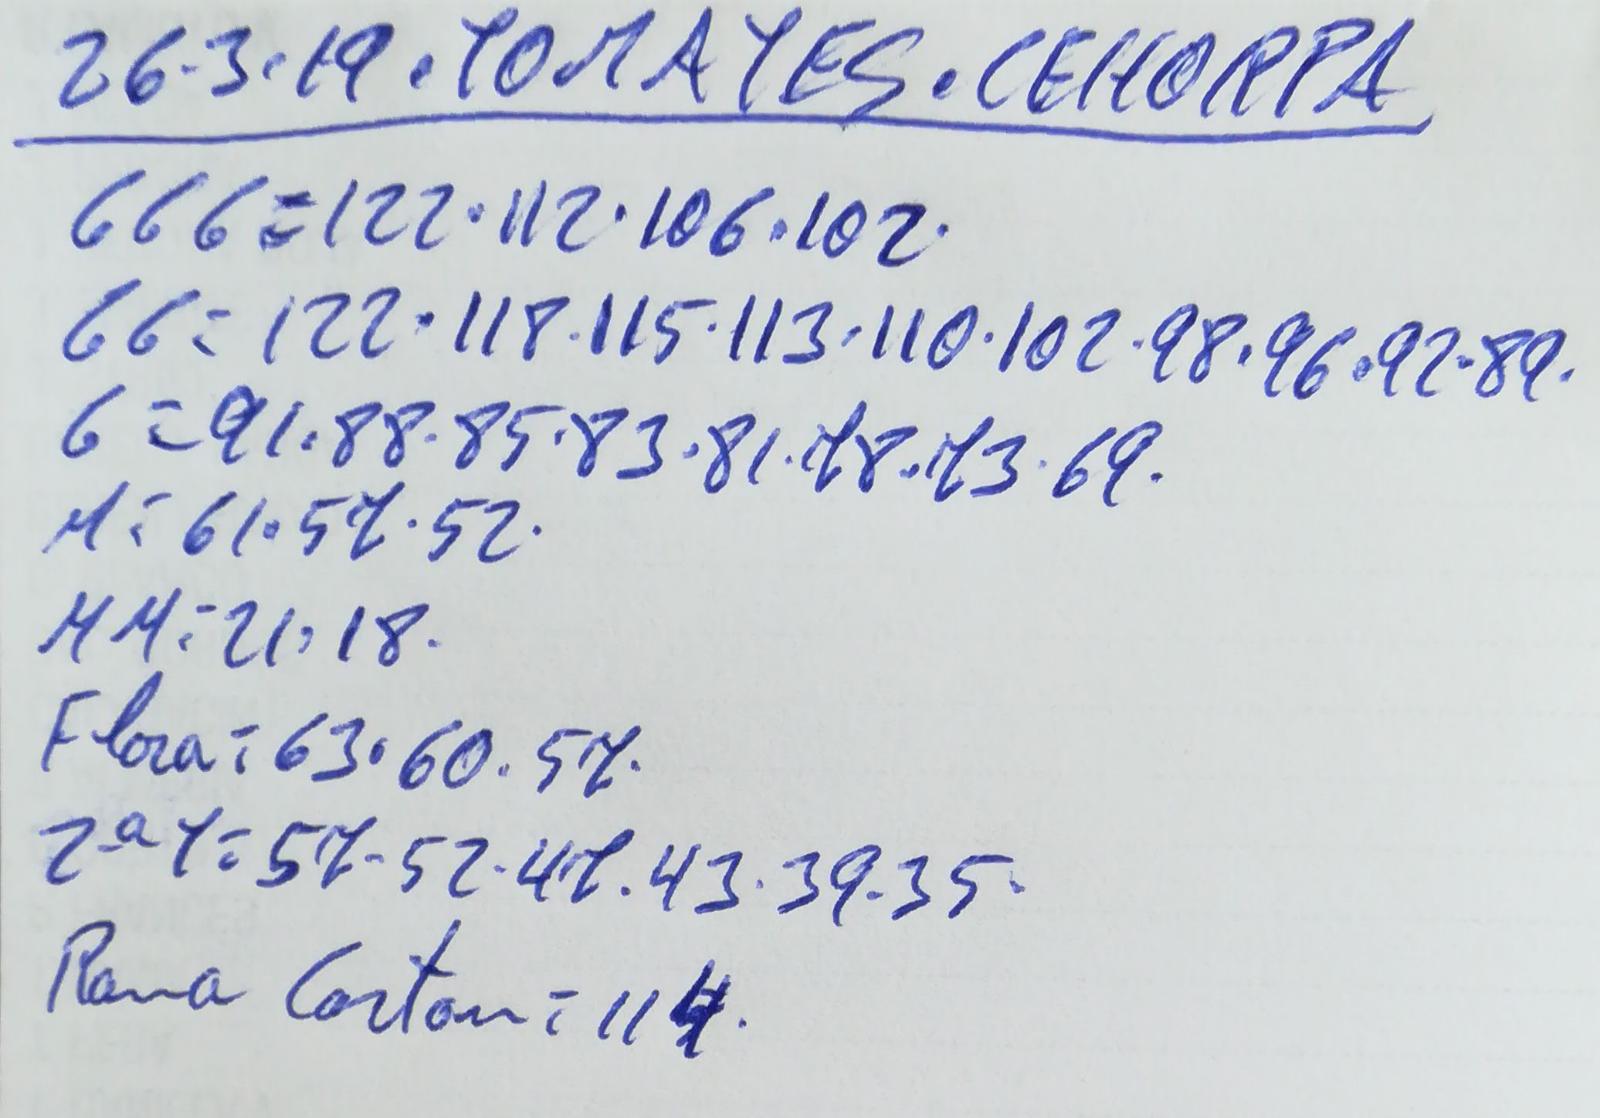 26.3.19.TOMATES.CEHORPA
GGG=122.112.106.102.
GG=122.118.115.113.110.102.98.96.92.89.
G=91.88.85.83.81.78.73.69.
M=61.57.52.
MM=21.18.
Flora=63.60.57.
2ªT=57.52.47.43.39.35.
Rama Carton=114.